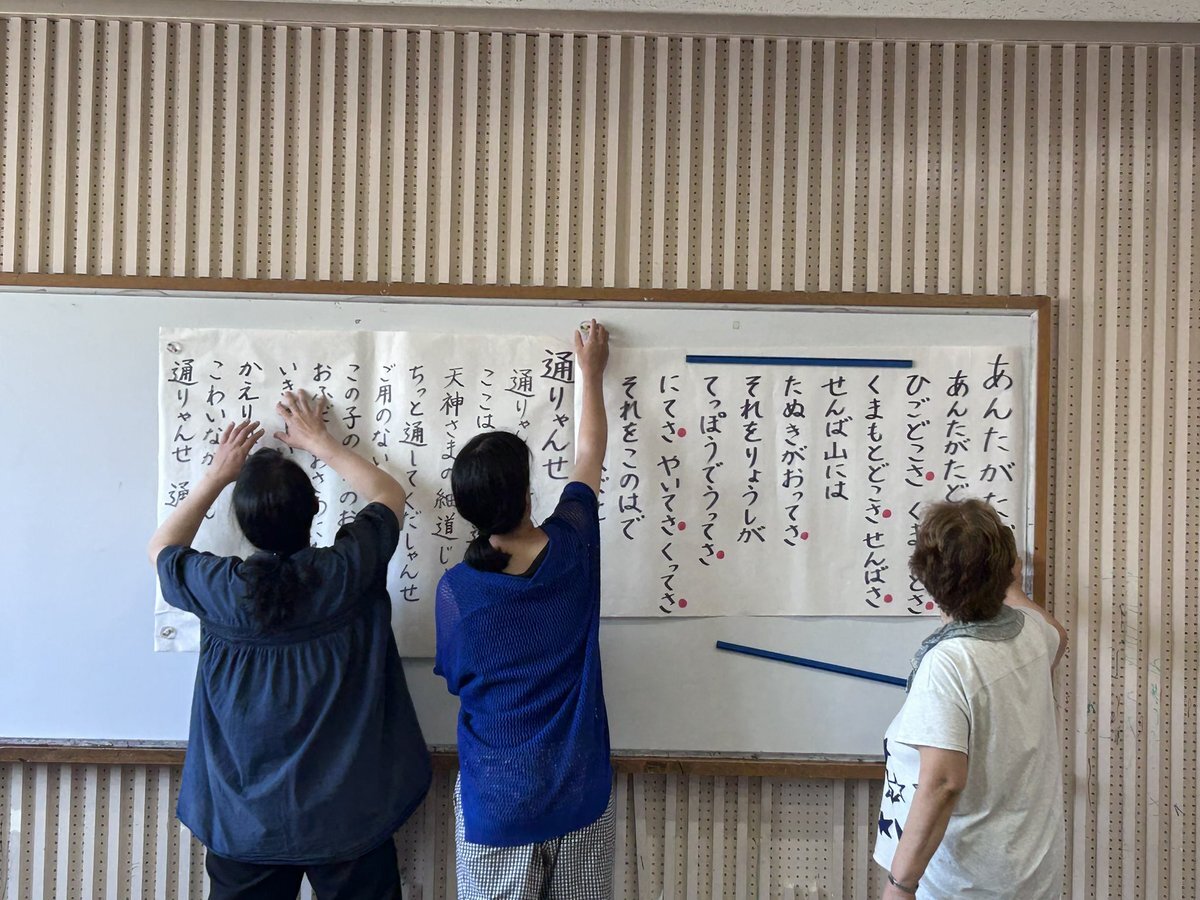 あんたがた
あんたがたど
ひごどこさ くま とさ
くまもとどこさ せんばさ
せんば山には
たぬきがおってさ
それをりょうしが
てっぽうでうってさ
にてさ やいてさ くってさ
それをこのはで
通りゃんせ
通りゃん
ここは
天神さまの細道じ
ちっと通してくだしゃんせ
ご用のない
この子の のお
おふだ おさめ
いき
かえり
こわいなが
通りゃんせ 通